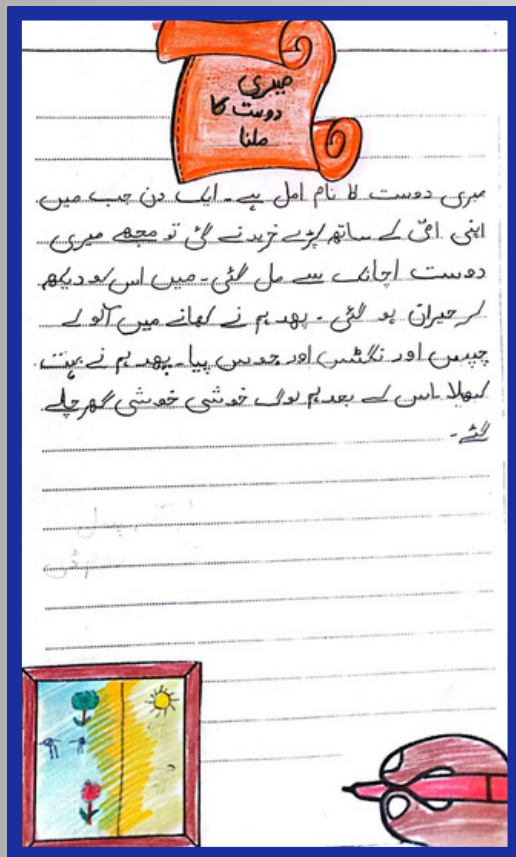 میری
دوست کا
ملنا
میری دوست کا نام امل ہے۔ ایک دن جب میں
اپنی امّی کے ساتھ کپڑے خریدنے گئی تو مجھے میری
دوست اچانک سے مل گئی۔ میں اس کو دیکھ
کر حیران ہو گئی۔ پھر ہم نے کھانے میں آلو کے
چپس اور نگٹس اور جوس پیا۔ پھر ہم نے بہت
کھیلا۔ اس کے بعد ہم لوگ خوشی خوشی گھر چلے
گئے۔